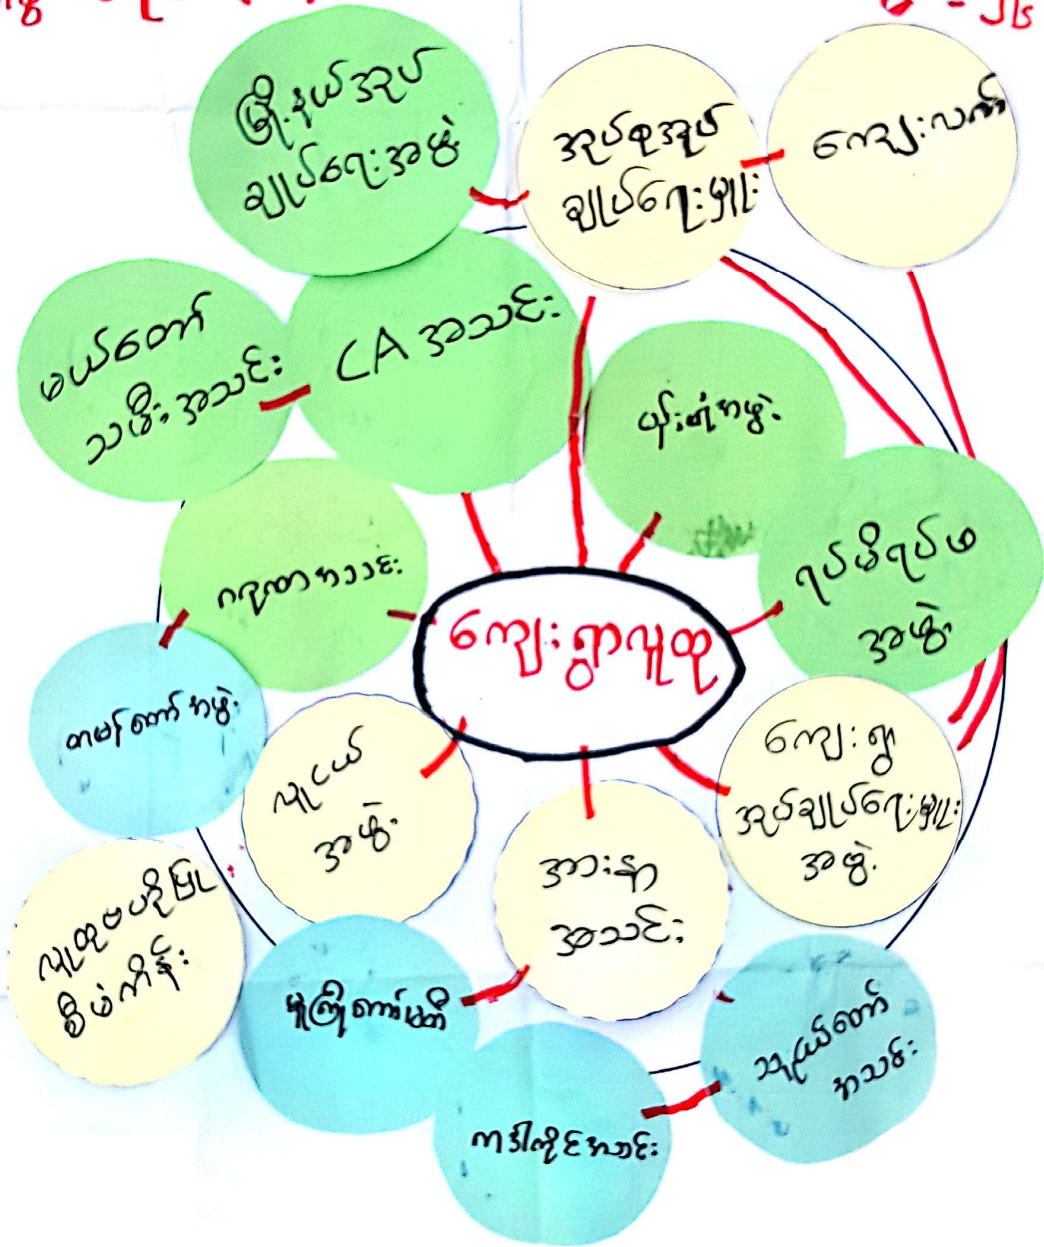 မြို့နယ်အုပ်
ချုပ်ရေးအဖွဲ့
အုပ်စုအုပ်
ချုပ်ရေးမှူး
ကျေးလက်
မယ်တော်
သမီးအသင်း
CA အသင်း
ပန်းတုံအဖွဲ့
ရပ်မိရပ်ဖ
အဖွဲ့
ဂရုဏာအသင်း
ကျေးရွာလူထု
တမန်တော်အဖွဲ့
လူငယ်
အဖွဲ့
ကျေးရွာ
အုပ်ချုပ်ရေးမှူး
အဖွဲ့
အားနာ
အသင်း
လူထုဗဟိုပြု
စီမံကိန်း
မူကြိုကော်မတီ
သူငယ်တော်
အသင်း
ကဒါကိုင်အသင်း